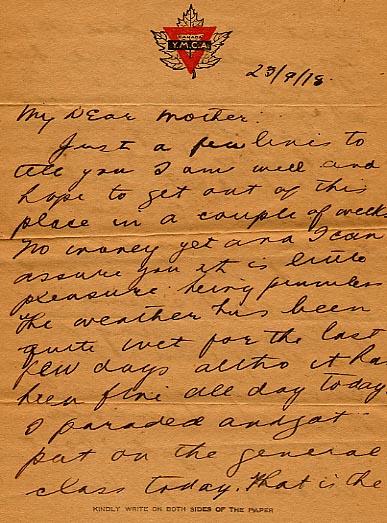 CANADA
Y.M.C.A.
23/9/18.
My Dear Mother:
Just a few lines to
tell you I am well and
hope to get out of this
place in a couple of weeks
No money yet and I can
assure you it is little
pleasure being penniless
The weather has been
quite wet for the last
few days altho it has
been fine all day today
I paraded and got
put on the general
class today. That is the
KINDLY WRITE ON BOTH SIDES OF THE PAPER